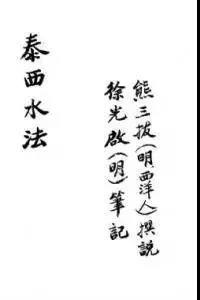 泰西水法
熊三拔(明、西洋人)撰說
徐光啟(明)筆記